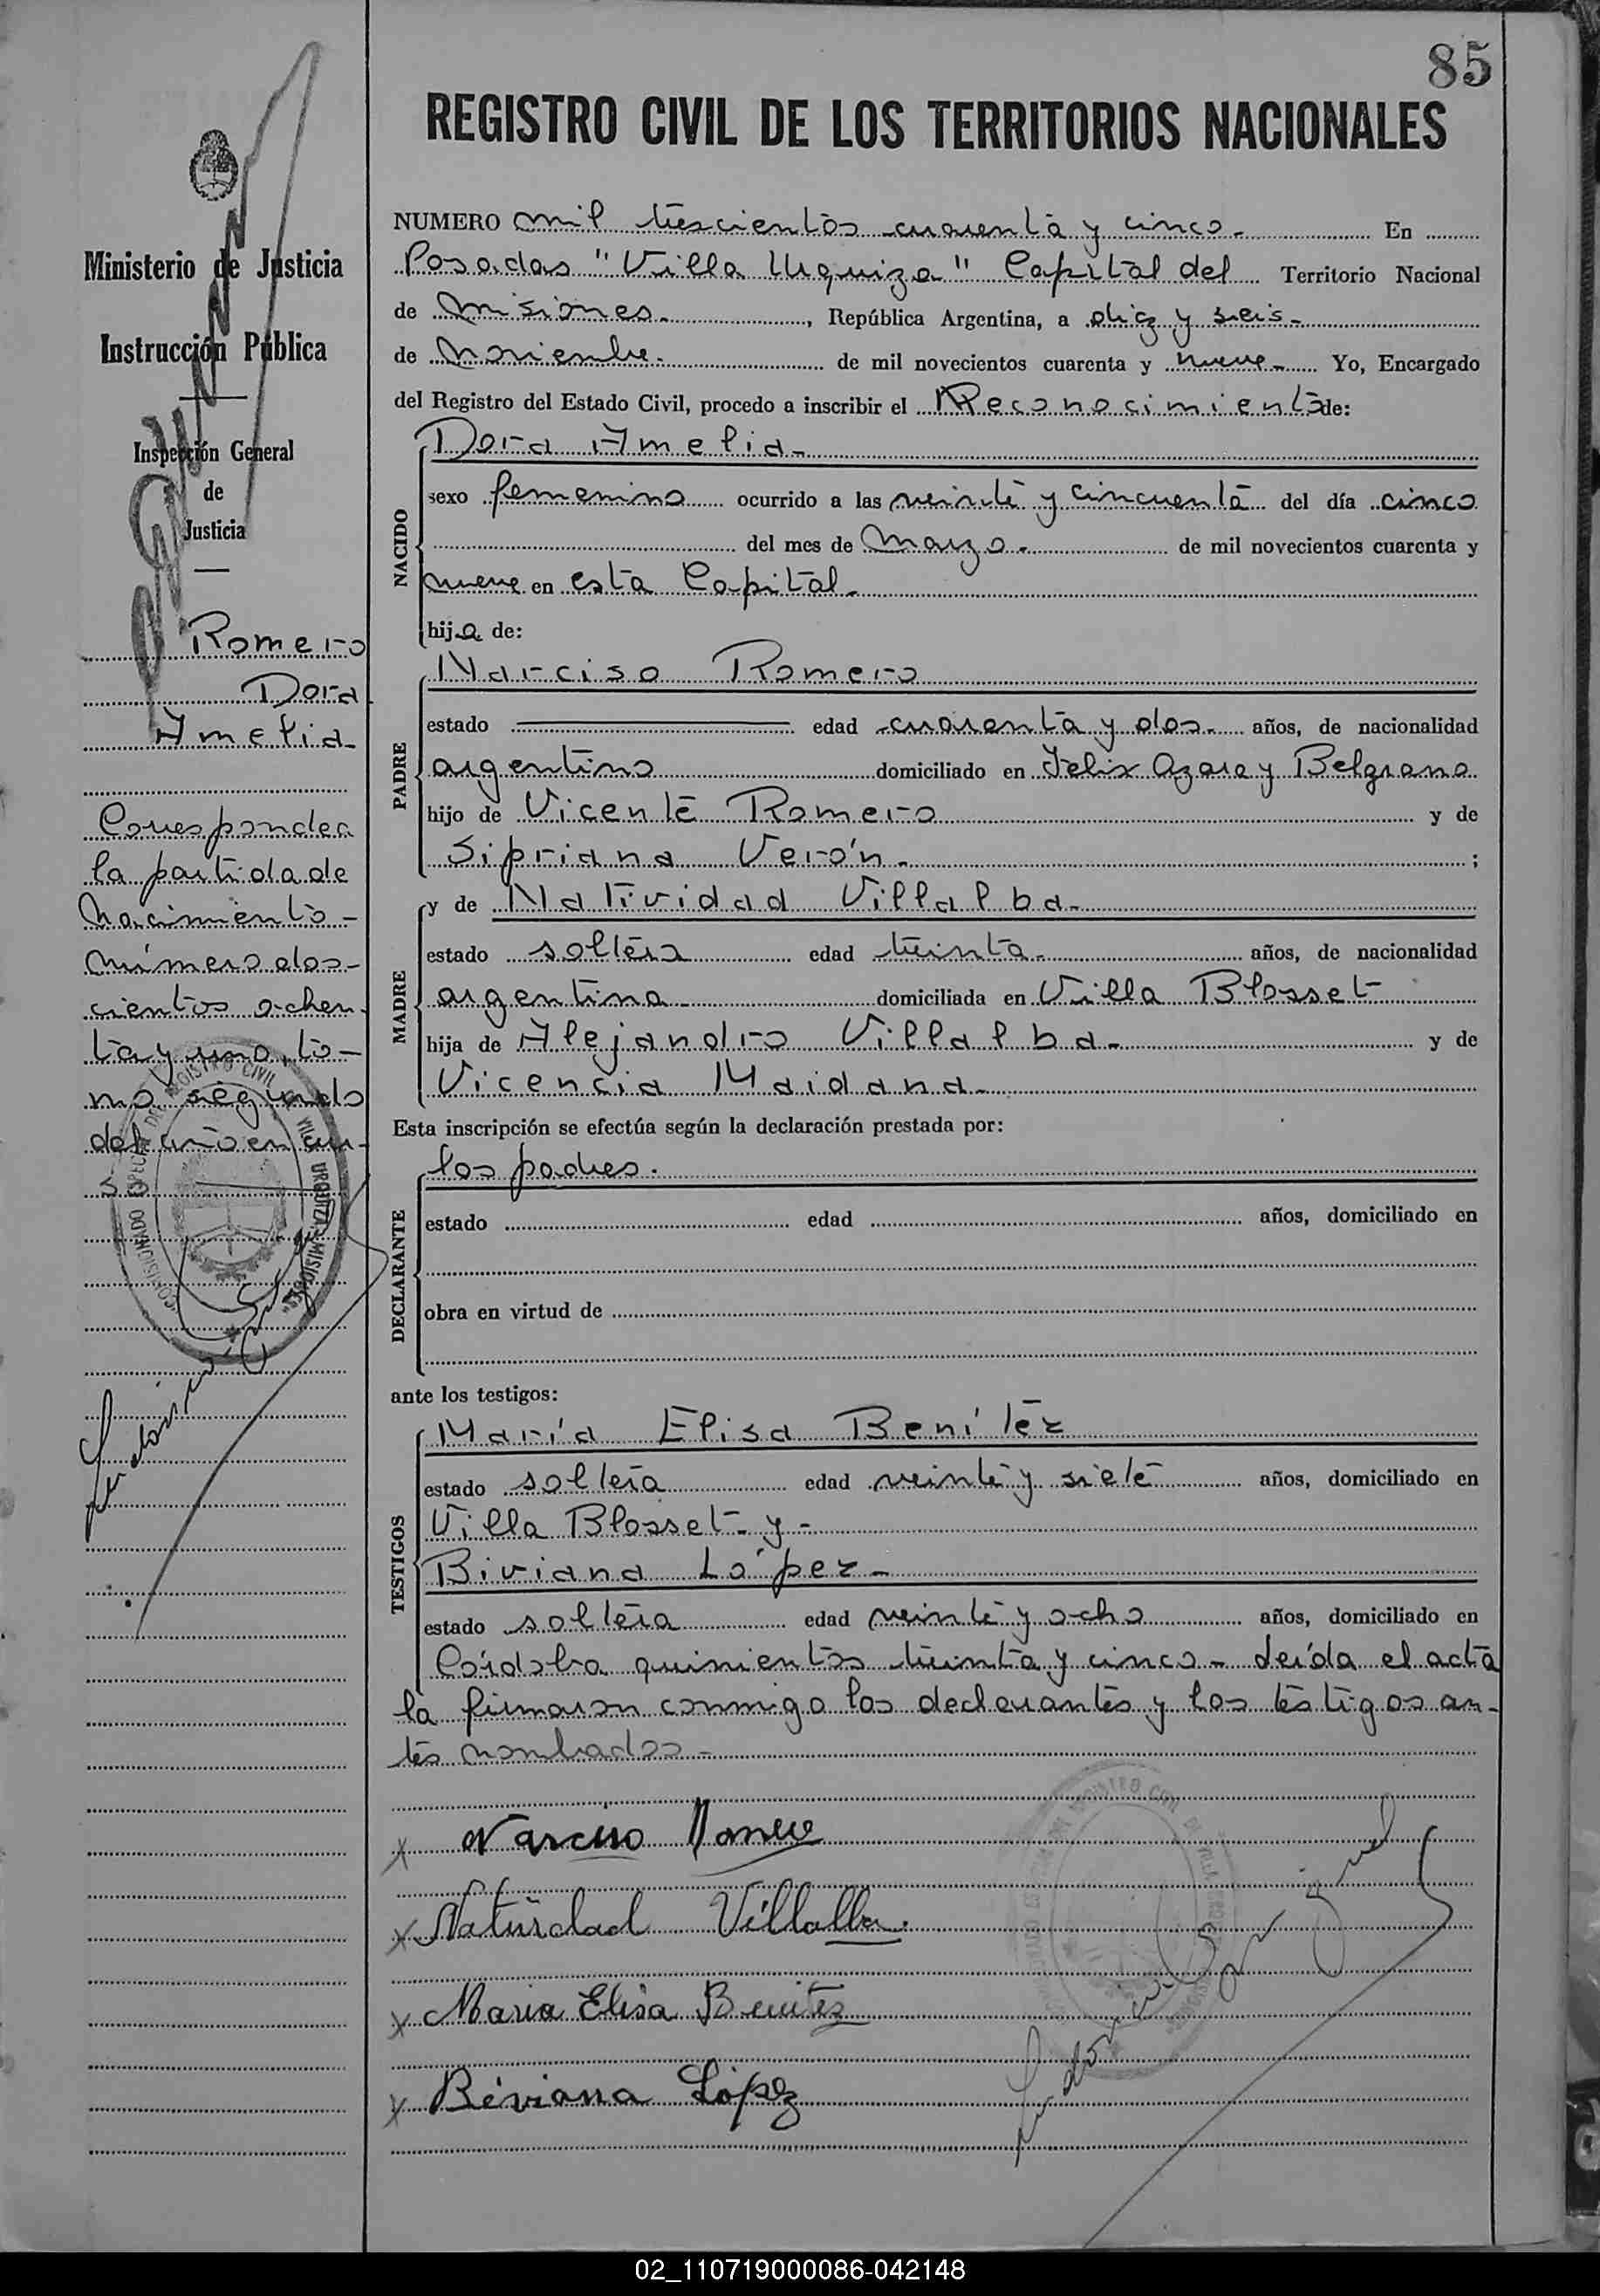 85
REGISTRO CIVIL DE LOS TERRITORIOS NACIONALES
Ministerio de Justicia
Instrucción Pública
Inspección General
de
Justicia
Romero
Dora
Amelia-
Corresponde a
la partida de
Nacimiento-
número dos-
cientos ochen-
ta y uno, to-
mo segundo
del año en cur-
so
NUMERO mil trescientos cuarenta y cinco- En
Posadas "Villa Urquiza" Capital del Territorio Nacional
de Misiones-, República Argentina, a diez y seis-
de Noviembre. de mil novecientos cuarenta y nueve- Yo, Encargado
del Registro del Estado Civil, procedo a inscribir el Reconocimiento de:
NACIDO
Dora Amelia-
sexo femenino ocurrido a las veinte y cincuenta del día cinco
del mes de Marzo- de mil novecientos cuarenta y
nueve en esta Capital-
hija de:
PADRE
Narciso Romero
estado edad cuarenta y dos- años, de nacionalidad
argentino domiciliado en Felix Azara y Belgrano
hijo de Vicente Romero y de
Sipriana Verón- ;
MADRE
y de Natividad Villalba-
estado soltera edad treinta- años, de nacionalidad
argentina domiciliada en Villa Blosset
hija de Alejandro Villalba- y de
Vicencia Maidana-
Esta inscripción se efectúa según la declaración prestada por:
DECLARANTE
los padres.
estado edad años, domiciliado en
obra en virtud de
ante los testigos:
TESTIGOS
María Elisa Benítez
estado soltera edad veinte y siete años, domiciliado en
Villa Blosset- y-
Biviana López-
estado soltera edad veinte y ocho años, domiciliado en
Córdoba quinientos treinta y cinco- Leída el acta
la firmaron conmigo los declarantes y los testigos an-
tes nombrados-
X Narciso Romero
X Natividad Villalba.
X Maria Elisa Benitez
X Béviana López
REGISTRO CIVIL
VILLA URQUIZA - MISIONES
COMISIONADO ESPECIAL DEL
02_110719000086-042148